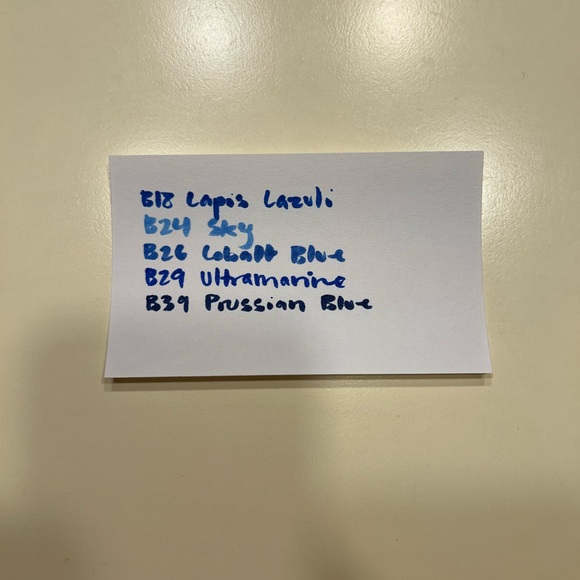 B18 Lapis Lazuli
B24 Sky
B26 Cobalt Blue
B29 Ultramarine
B39 Prussian Blue